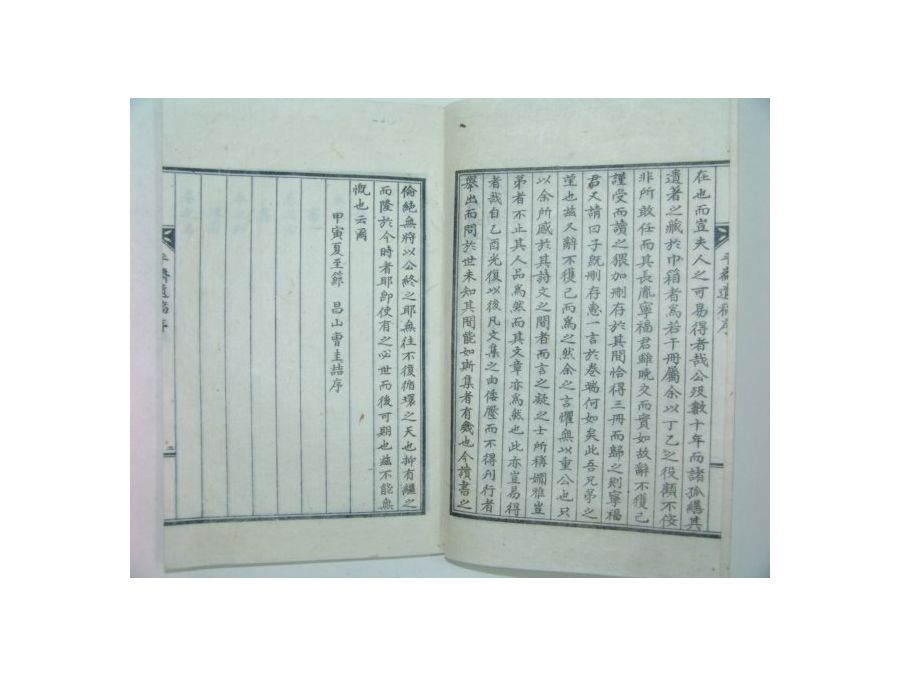 在也而豈夫人之可易得者哉公歿數十年而諸孤繕其
遺著之藏於巾箱者為若干冊屬余以丁乙之役顧不侫
非所敢任而其長胤寧福君雖晩交而實如故辭不獲已
謹受而讀之猥加刪存於其間恰得三冊而歸之則寧福
君又請曰子既刪存惠一言於卷端何如矣此吾兄弟之
望也玆又辭不獲已而為之然余之言懼無以重公也只
以余所感於其詩文之間者而言之凝之士所稱嫺雅豈
弟者不止其人品為然而其文章亦為然也此亦豈易得
者哉自乙酉光復以後凡文集之由倭壓而不得刋行者
舉出而問於世未知其間能如斯集者有幾也今讀書之
平齋遺稿序
倫絶無將以公終之耶無往不復循環之天也抑有繼之
而隆於今時者耶卽使有之必世而後可期也玆不能無
慨也云爾
甲寅夏至節 昌山曺圭喆序
平齋遺稿序
二